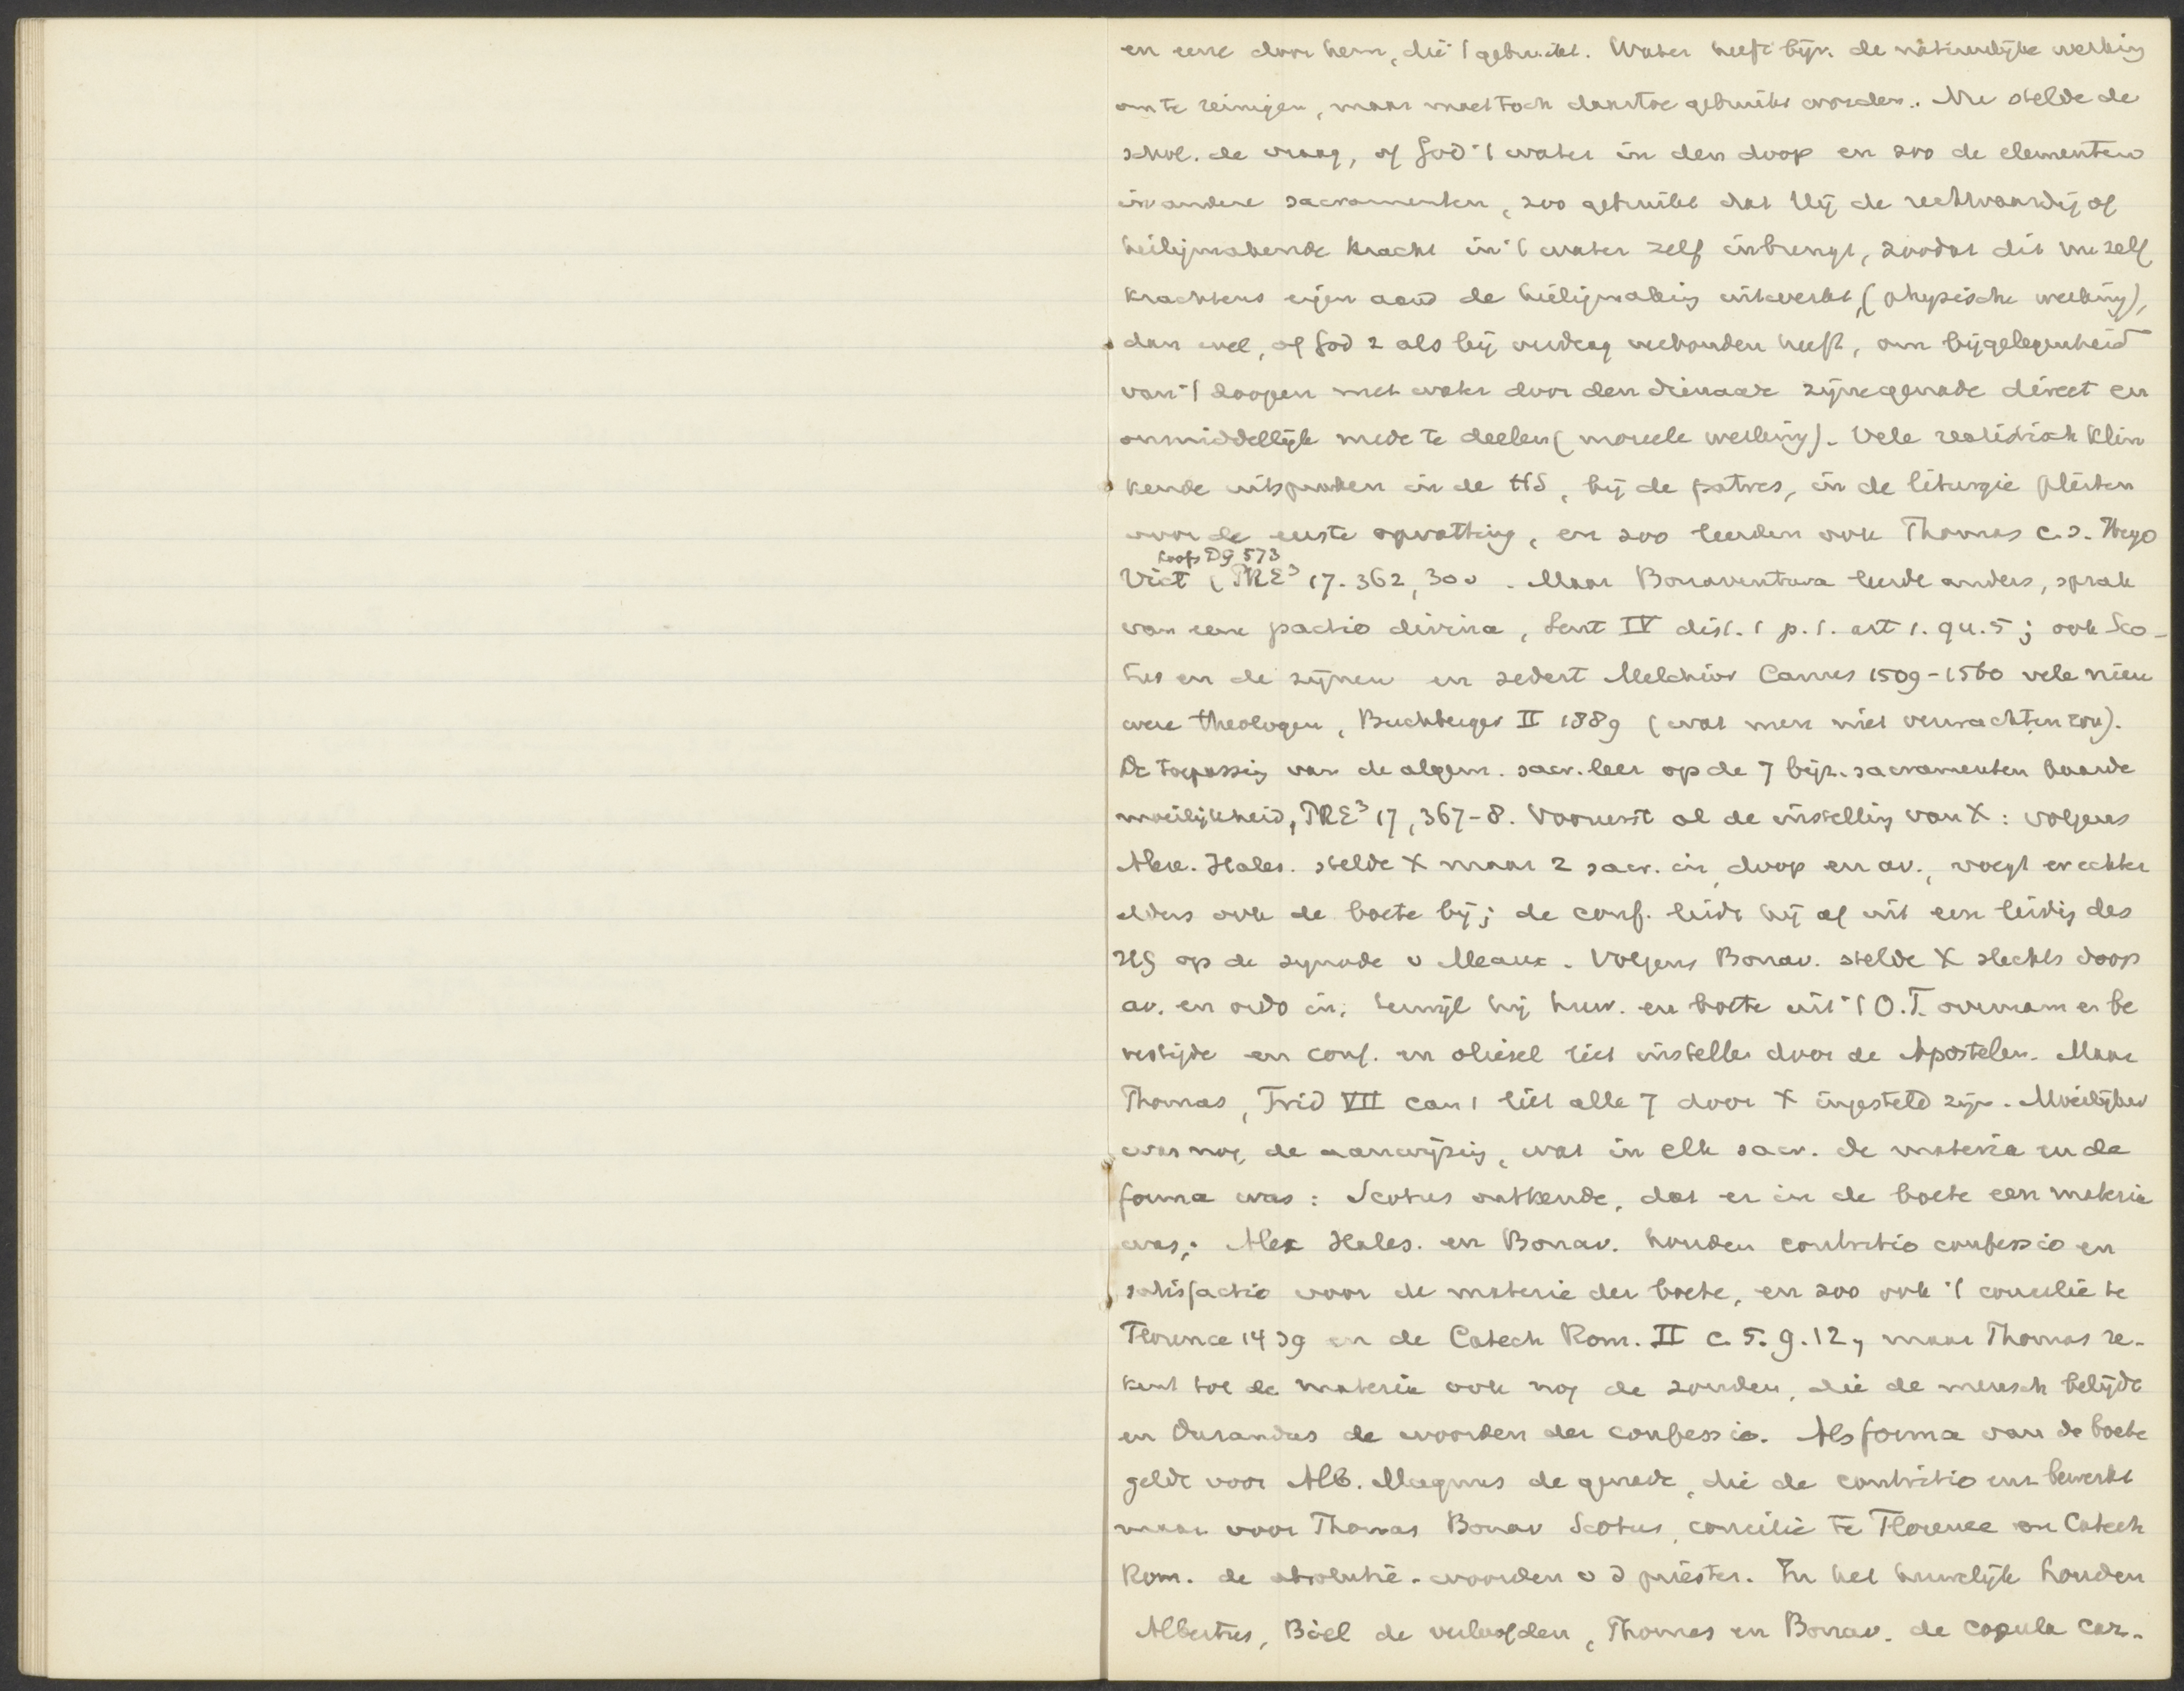 en eene door hem, die 't gebruikt. Water heeft bijv. de natuurlijke werking
om te reinigen, maar moet toch daartoe gebruikt worden. Nu stelde de
schol. de vraag, of God 't water in den doop en zoo de elementen
in andere sacramenten, zoo gebruikt dat Hij de rechtvaardig of
heiligmakende kracht in 't water zelf inbrengt, zoodat dit nu zelf
krachtens eigen aard de heiligmaking uitwerkt, (physische werking),
dan wel, of God z als bij verdrag verbonden heeft, om bij gelegenheid
van 't doopen met water door den dienaar zijne genade direct en
onmiddellijk mede te deelen (moreele werking). Vele realistisch klin
kende uitspraken in de HS, bij de patres, in de liturgie pleiten
voor de eerste opvatting, en zoo leerden ook Thomas c.s. Hugo
Loofs DG 573
Vict (PRE³ 17. 362, 300 . Maar Bonaventura leerde anders, sprak
van eene pactio divina, Sent IV dist. 1 p. 1. art 1. qu. 5; ook Sco-
tus en de zijnen en sedert Melchior Canus 1509-1560 vele nieu
were theologen, Buchberger II 1889 (wat men niet verwachten zou).
De toepassing van de algem. sacr. leer op de 7 bijz. sacramenten baarde
moeilijkheid, PRE³ 17, 367-8. Vooreerst al de instelling van X: volgens
Alex. Hales. stelde X maar 2 sacr. in, doop en av., voegt er echter
elders ook de boete bij; de conf. leidt hij af uit een leiding des
HG op de synode v Meaux. Volgens Bonav. stelde X slechts doop
av. en ordo in, terwijl hij huw. en boete uit 't O.T. overnam en be
vestigde en conf. en oliesel liet instellen door de Apostelen. Maar
Thomas, Trid VII can 1 liet alle 7 door X ingesteld zijn. Moeilijker
was nog de aanwijzing, wat in elk sacr. de materia en de
forma was: Scotus ontkende, dat er in de boete een materie
was; Alex Hales. en Bonav. houden contritio confessio en
satisfactio voor de materie der boete, en zoo ook 't concilie te
Florence 1439 en de Catech Rom. II c. 5. q. 12, maar Thomas re-
kent tot de materie ook nog de zonden, die de mensch belijdt
en Durandus de woorden der confessio. Als forma van de boete
geldt voor Alb. Magnus de genade, die de contritio enz bewerkt
maar voor Thomas Bonav Scotus, concilie te Florence en Catech
Rom. de absolutie-woorden v d priester. In het huwelijk houden
Albertus, Biel de verloofden, Thomas en Bonav. de copula car-